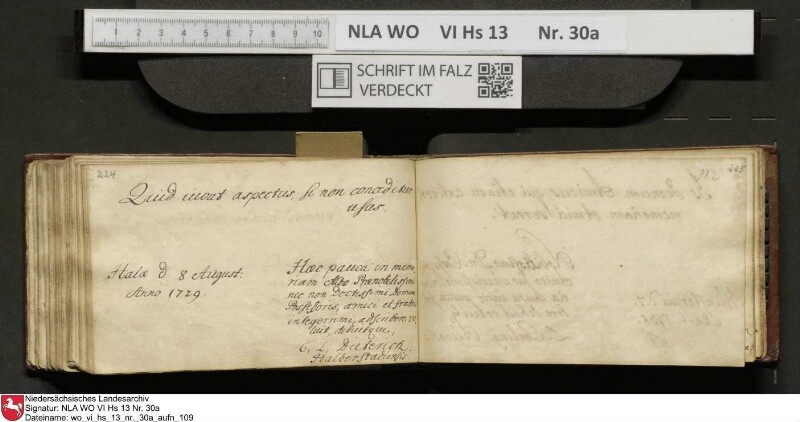 NLA WO VI Hs 13 Nr. 30a
SCHRIFT IM FALZ
VERDECKT
224
Quid iuvat aspectus, si non conceditur
usus.
Halæ d. 8 August:
Anno 1729.
Hæc pauca in memo
riam Albo Prænobilissimi
nec non Doctissimi Domini
Possessoris, amici et fratris
integerrimi, adscribere vo
luit, debuitque,
C. L. Dieterich.
Halberstadiensis
112
225
Niedersächsisches Landesarchiv
Signatur: NLA WO VI Hs 13 Nr. 30a
Dateiname: wo_vi_hs_13_nr._30a_aufn_109